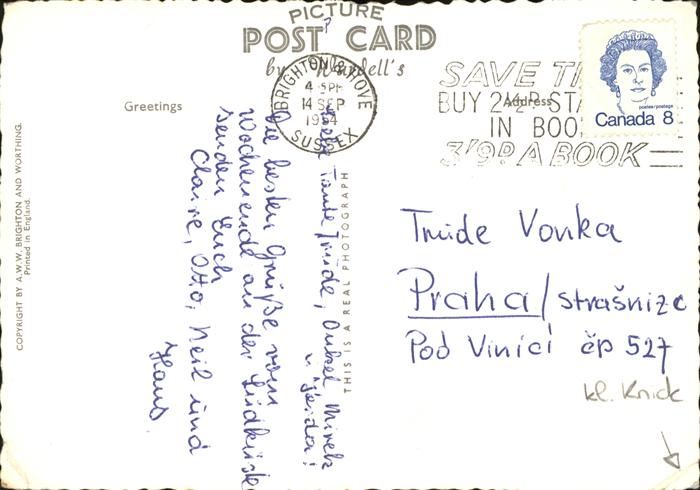 PICTURE
POST CARD
by Wardell's
Greetings
Address
BRIGHTON & HOVE
4 - 5PM
14 SEP
1954
SUSSEX
SAVE TI
BUY 2½D STA
IN BOO
3/9? A BOOK
postes/postage
Canada 8
Liebe Tante Trude, Onkel Mirek
u. Jarda!
Die besten Grüße vom
Wochenende an der Südküste
senden Euch
Claire, Otto, Neil und
Hans.
THIS IS A REAL PHOTOGRAPH
COPYRIGHT BY A.W.W. BRIGHTON AND WORTHING.
Printed in England.
Trude Vonka
Praha/strašnize
Pod Vinicí čp 527
kl. Knick